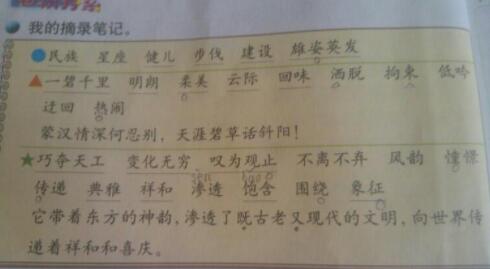 我的摘录笔记。
民族 星座 健儿 步伐 建设 雄姿英发
一碧千里 明朗 柔美 云际 回味 洒脱 拘束 低吟
迂回 热闹
蒙汉情深何忍别，天涯碧草话斜阳！
★巧夺天工 变化无穷 叹为观止 不离不弃 风韵 憧憬
传递 典雅 祥和 渗透 饱含 围绕 象征
它带着东方的神韵，渗透了既古老又现代的文明，向世界传
递着祥和和喜庆。